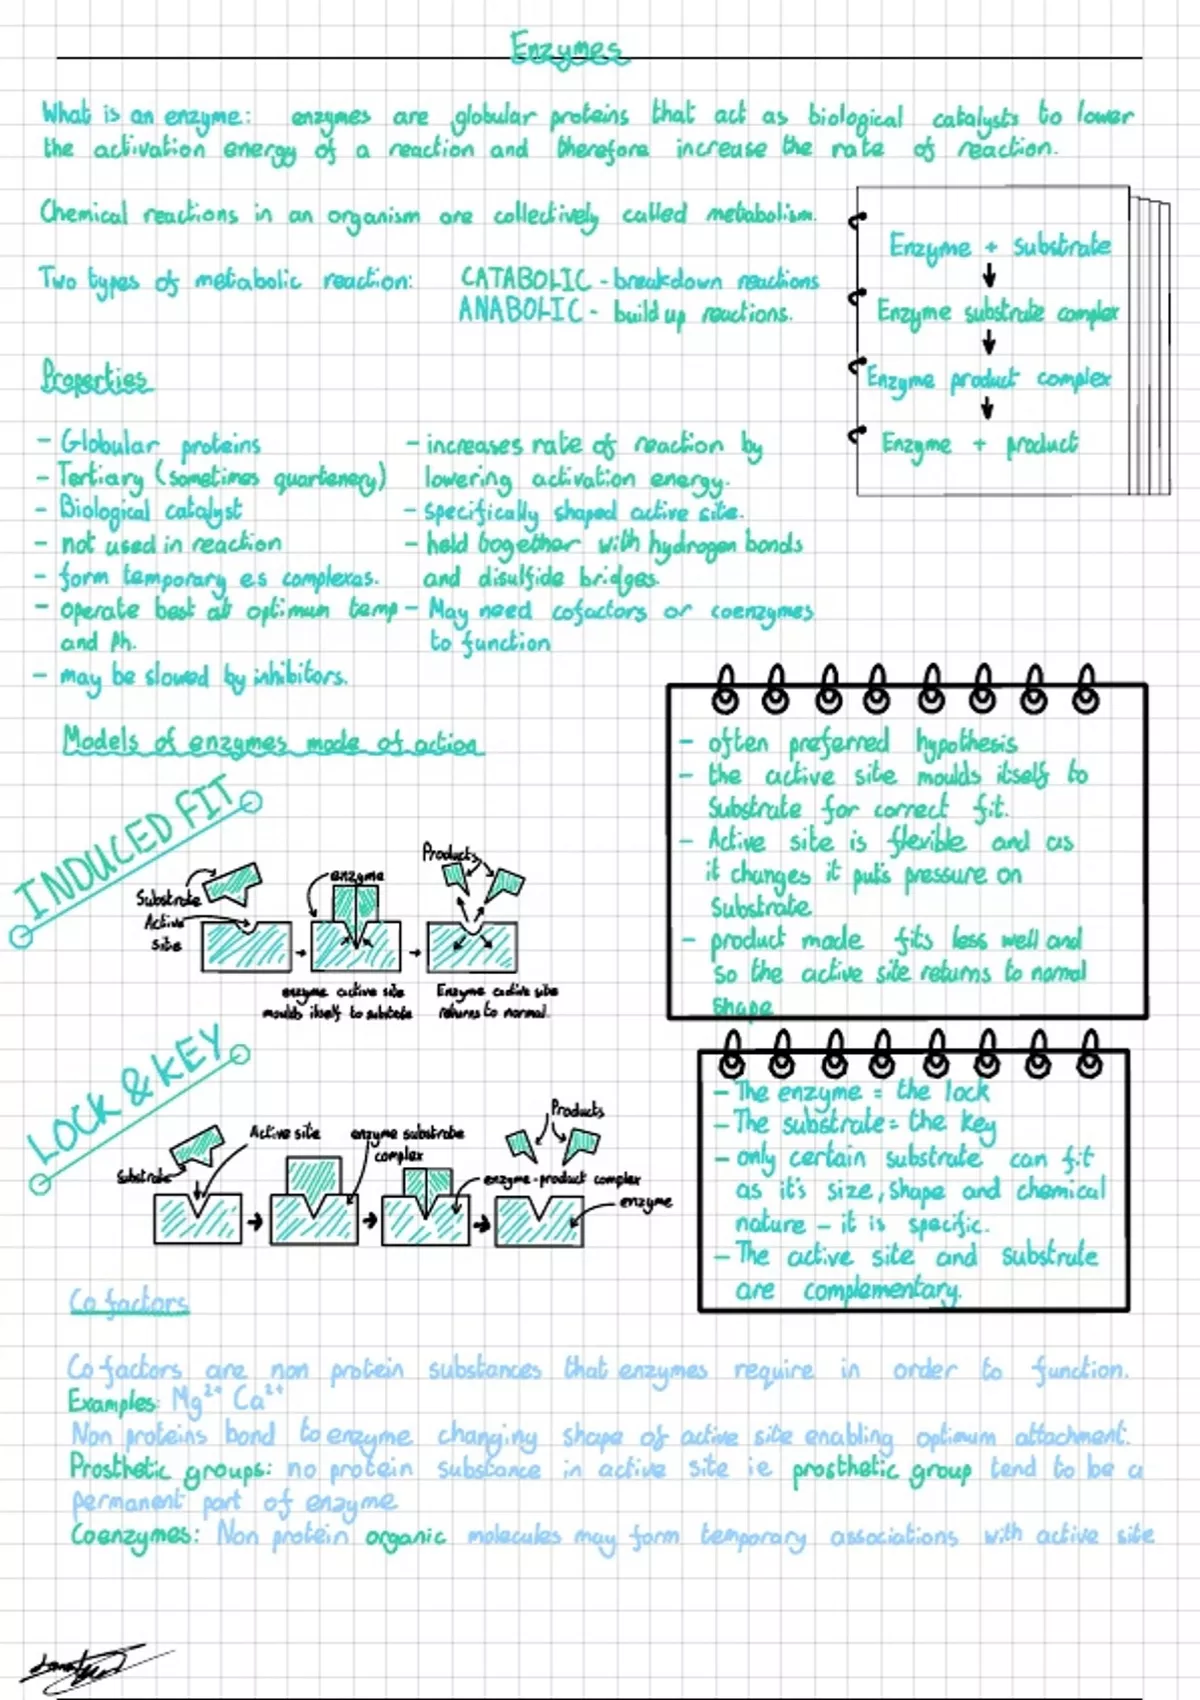 Enzymes
What is an enzyme: enzymes are globular proteins that act as biological catalysts to lower
the activation energy of a reaction and therefore increase the rate of reaction.
Chemical reactions in an organism are collectively called metabolism.
Two types of metabolic reaction: CATABOLIC - breakdown reactions
ANABOLIC - build up reactions.
Enzyme + substrate
Enzyme substrate complex
Enzyme product complex
Enzyme + product
Properties
- Globular proteins
- Tertiary (sometimes quartenery)
- Biological catalyst
- not used in reaction
- form temporary es complexas.
- operate best at optimum temp
and Ph.
- may be slowed by inhibitors.
- increases rate of reaction by
lowering activation energy.
- specifically shaped active site.
- held together with hydrogen bonds
and disulfide bridges.
- May need cofactors or coenzymes
to function
Models of enzymes mode of action
INDUCED FIT
Substrate
Active
site
enzyme
Products
enzyme active site
moulds itself to substrate
Enzyme active site
returns to normal.
- often preferred hypothesis
- the active site moulds itself to
Substrate for correct fit.
- Active site is flexible and as
it changes it puts pressure on
Substrate
- product made fits less well and
so the active site returns to normal
shape
LOCK & KEY
Substrate
Active site
enzyme substrate
complex
Products
enzyme-product complex
enzyme
- The enzyme = the lock
- The substrate = the key
- only certain substrate can fit
as it's size, shape and chemical
nature - it is specific.
- The active site and substrate
are complementary.
Co factors
Co factors are non protein substances that enzymes require in order to function.
Examples: Mg²⁺ Ca²⁺
Non proteins bond to enzyme changing shape of active site enabling optimum attachment.
Prosthetic groups: no protein substance in active site ie prosthetic group tend to be a
permanent part of enzyme
Coenzymes: Non protein organic molecules may form temporary associations with active site